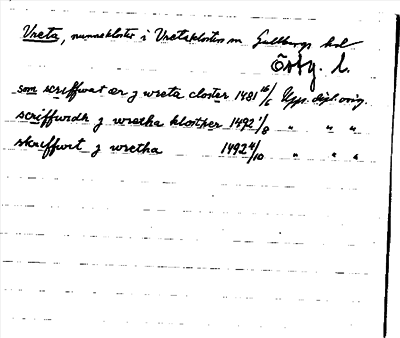 Vreta, nunnekloster i Vretaklosters sn Gullbergs hd
Östg. l.
som scriffwat er j wreta closter 1481 16/6 Upps. dipl. orig.
scriffwidh j wretha klosther 1492 1/8 " " "
skriffwit j wretha 1492 4/10 " " "